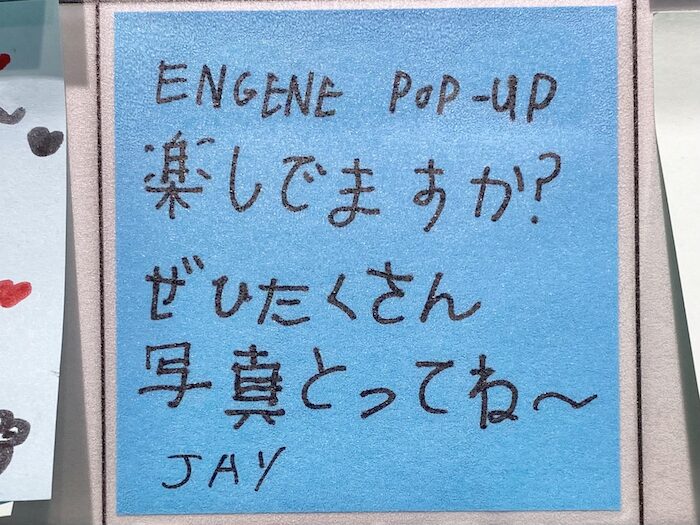 ENGENE POP-UP
楽しでますか?
ぜひたくさん
写真とってね〜
JAY